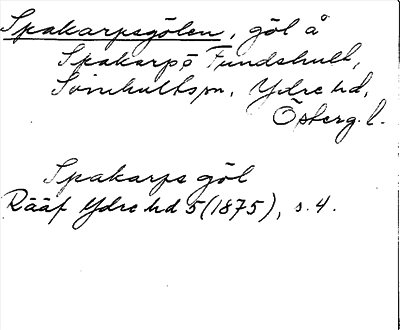 Spakarpsgölen, göl å
Spakarps Fundshult,
Svinhults sn, Ydre hd,
Österg. l.
Spakarps göl
Rääf Ydre hd 5 (1875), s. 4.